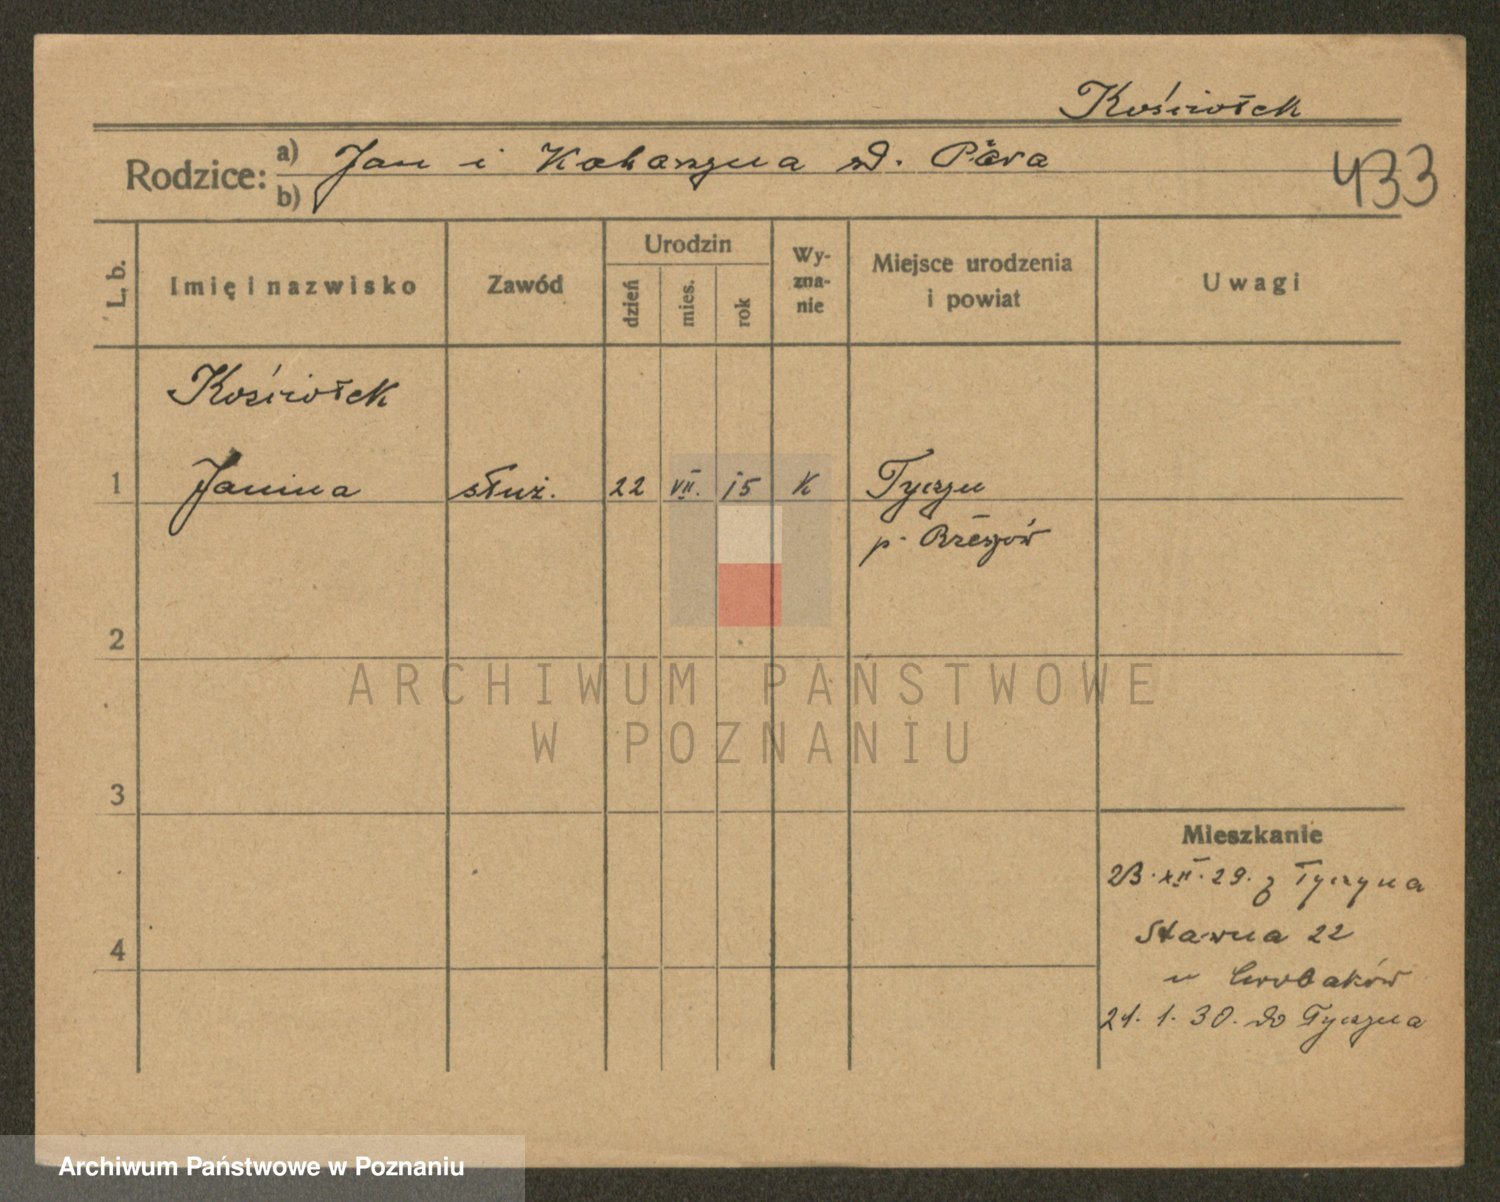 Kościołek
Rodzice: a) Jan i Katarzyna d.
b)
433
L. b.
Imię i nazwisko
Zawód
Urodzin
dzień
mies.
rok
Wy-
zna-
nie
Miejsce urodzenia
i powiat
Uwagi
Kościołek
1 Janina służ. 22 VII. 15 K Tyczyn
p. Rzeszów
2
ARCHIWUM PAŃSTWOWE
W POZNANIU
3
Mieszkanie
23.XII.29. z Tyczyna
4
Sławna 22
u
21.1.30. do Tyczyna
Archiwum Państwowe w Poznaniu